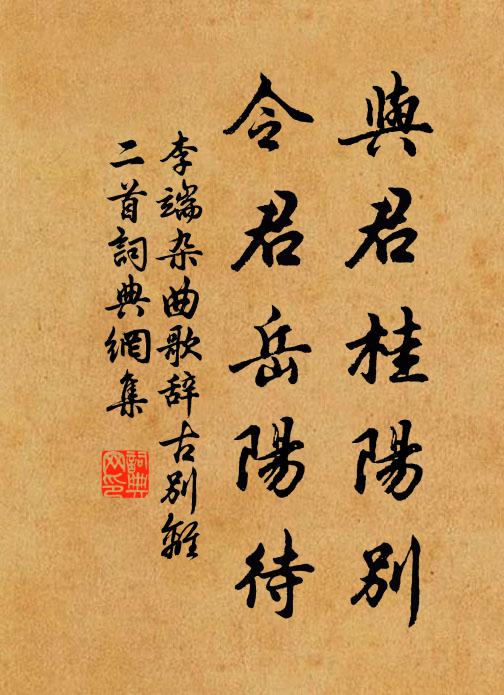 與君桂陽別
令君岳陽待
李端杂曲歌辞古别離
二首詞典網集
詞典
网印